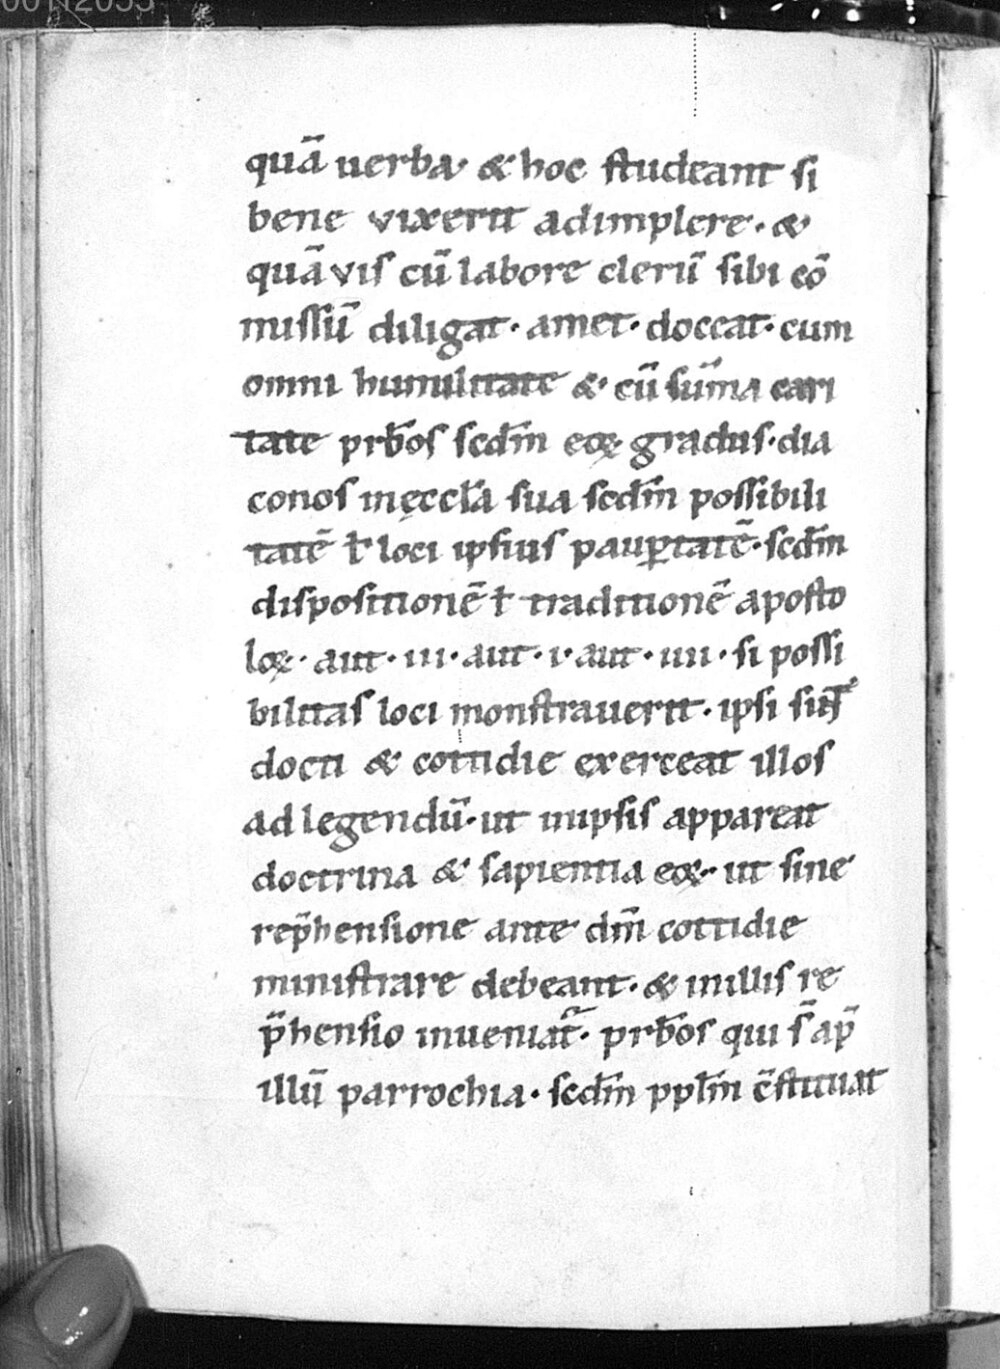 quā uerba· & hoc studeant si
bene vixerit adimplere· &
quāvis cū labore clerū sibi cō
missū diligat· amet· doceat· cum
omni humilitate & cū sūma cari
tate prb̄os scdm̄ eoꝝ gradus· dia
conos inęccl̄a sua scdm̄ possibili
tatē ł loci ipsius pauꝑtatē· scdm̄
dispositionē ł traditionē aposto
loꝝ· aut· iii· aut· v· aut· uii· si possi
bilitas loci monstrauerit· ipsi sint
docti & cottidie exerceat illos
ad legendū· ut inipsis appareat
doctrina & sapientia eoꝝ· ut sine
rep̄hensione ante dm̄ cottidie
ministrare debeant· & inillis re
p̄hensio inueniat᷑· prb̄os qui s̄ ap̄
illū parrochia· scdm̄ ppl̄m c̄stituat